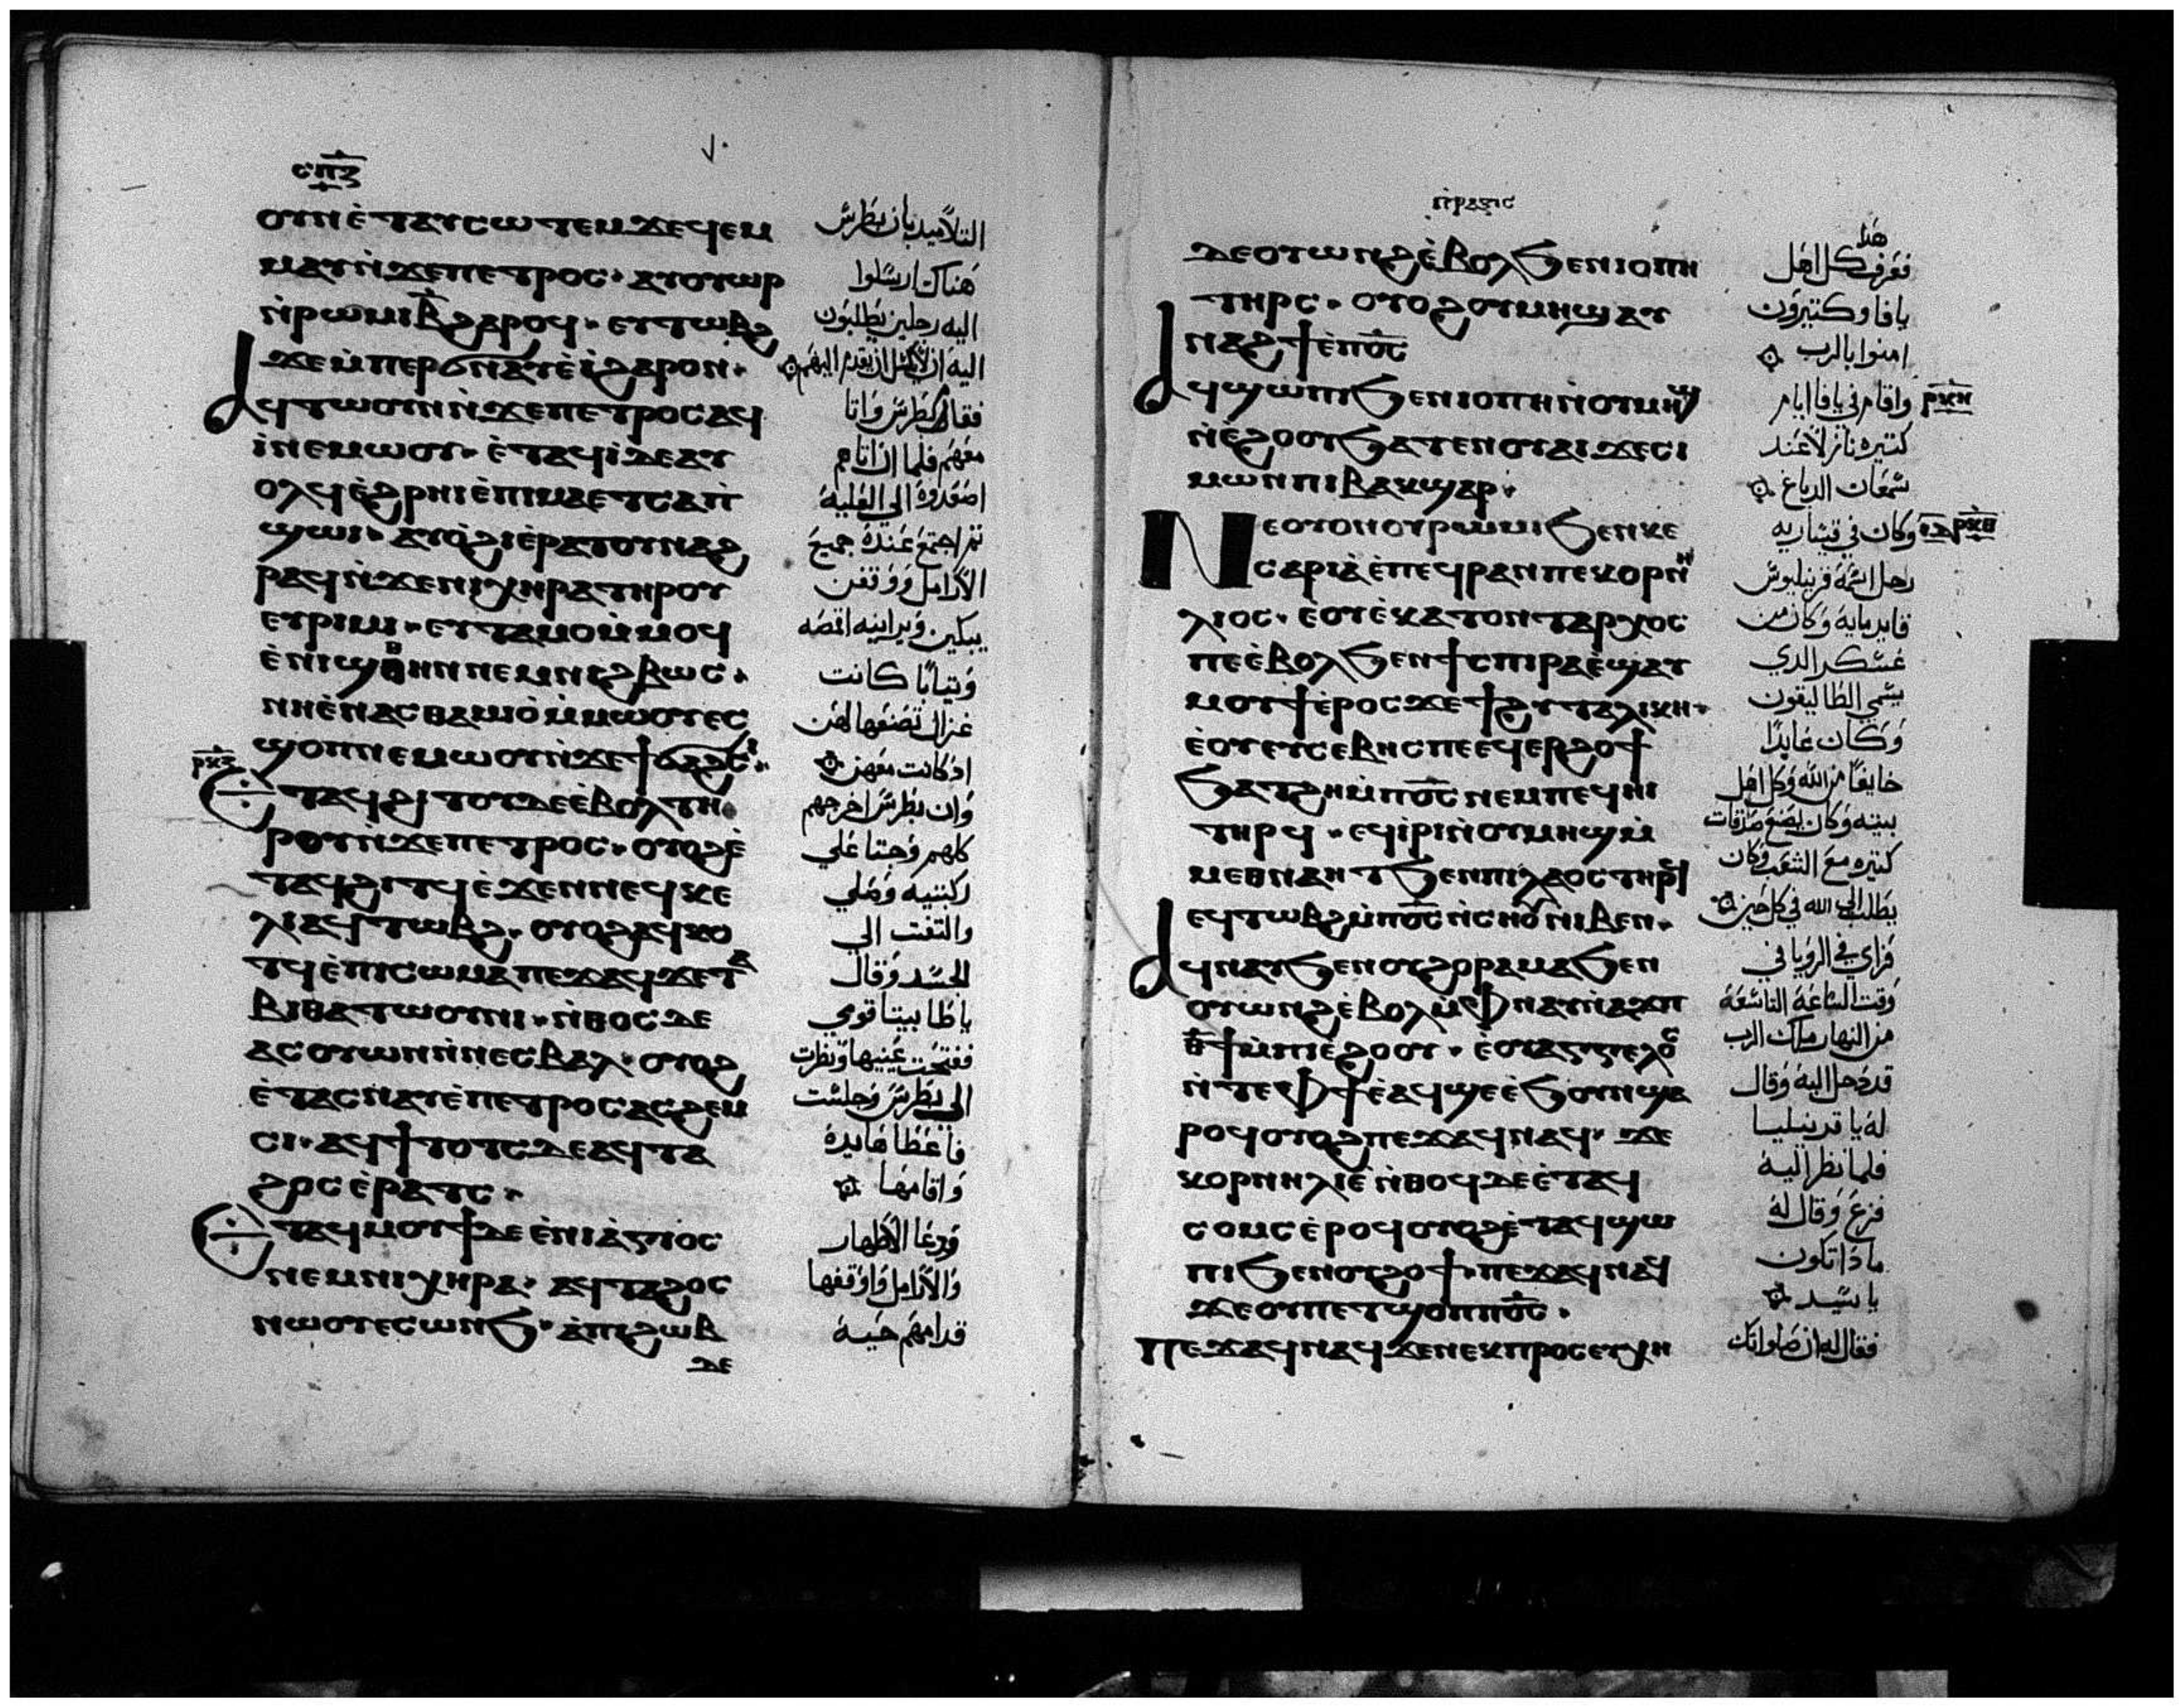 ⲥⲡⲍ
ⲟⲩⲛ ⲉ̀ⲧⲁⲩⲥⲱⲧⲉⲙ ϫⲉ ϥⲉⲙ
ⲙⲁⲩ ⲛ̀ϫⲉ ⲡⲉⲧⲣⲟⲥ · ⲁⲩⲟⲩⲱⲣ
ⲛ̀ⲣⲱⲙⲓ ⲃ̅ ϩⲁⲣⲟϥ · ⲉⲩⲧⲱⲃϩ
ϫⲉ ⲙ̀ⲡⲉⲣϭⲛⲁⲩ ⲉ̀ⲓ̀ ϩⲁⲣⲟⲛ ·
ⲁϥⲧⲱⲟⲩⲛ ⲛ̀ϫⲉ ⲡⲉⲧⲣⲟⲥ ⲁϥ
ⲓ̀ ⲛⲉⲙⲱⲟⲩ · ⲉ̀ⲧⲁϥⲓ̀ ⲇⲉ ⲁⲩ
ⲟⲗϥ ⲉ̀ϩⲣⲏⲓ ⲉ̀ⲡⲓⲙⲁ ⲉⲧⲥⲁⲡ̀
ϣⲱⲓ · ⲁⲩⲟ̀ϩⲓ ⲉ̀ⲣⲁⲧⲟⲩ ⲛⲁϩ
ⲣⲁϥ ⲛ̀ϫⲉ ⲛⲓⲭⲏⲣⲁ ⲧⲏⲣⲟⲩ
ⲉⲩⲣⲓⲙⲓ · ⲉⲩⲧⲁⲙⲟ ⲙ̀ⲙⲟϥ
ⲉ̀ⲛⲓϣⲑⲏⲛ ⲛⲉⲙ ⲛⲓϩⲃⲱⲥ ·
ⲛⲏ ⲉ̀ⲛⲁⲥⲑⲁⲙⲓⲟ̀ ⲙ̀ⲙⲱⲟⲩ ⲉⲥ
ϣⲟⲡ ⲛⲉⲙⲱⲟⲩ ⲛ̀ϫⲉ ϯϭⲁϩⲥⲓ ·
ⲣⲕⲍ
ⲉⲧⲁϥϩⲓⲧⲟⲩ ⲇⲉ ⲉ̀ⲃⲟⲗ ⲧⲏ
ⲣⲟⲩ ⲛ̀ϫⲉ ⲡⲉⲧⲣⲟⲥ · ⲟⲩⲟϩ ⲉ̀
ⲧⲁϥϩⲓⲧϥ ⲉ̀ϫⲉⲛ ⲛⲉϥⲕⲉ
ⲗⲓ ⲁϥⲧⲱⲃϩ · ⲟⲩⲟϩ ⲁϥⲕⲟ
ⲧϥ ⲉ̀ⲡⲓⲥⲱⲙⲁ ⲡⲉϫⲁϥ ϫⲉ ⲧⲁ
ⲃⲓⲑⲁ ⲧⲱⲟⲩⲛⲓ · ⲛ̀ⲑⲟⲥ ⲇⲉ
ⲁⲥⲟⲩⲱⲛ ⲛ̀ⲛⲉⲥⲃⲁⲗ · ⲟⲩⲟϩ
ⲉ̀ⲧⲁⲥⲛⲁⲩ ⲉ̀ⲡⲉⲧⲣⲟⲥ ⲁⲥϩⲉⲙ
ⲥⲓ · ⲁϥϯⲧⲟⲧⲥ ⲇⲉ ⲁϥⲧⲁ
ϩⲟⲥ ⲉ̀ⲣⲁⲧⲥ ·
ⲉⲧⲁϥⲙⲟⲩϯ ⲇⲉ ⲉ̀ⲛⲓⲁ̀ⲅⲓⲟⲥ
ⲛⲉⲙ ⲛⲓⲭⲏⲣⲁ · ⲁϥⲧⲁϩⲟⲥ
ⲛⲱⲟⲩ ⲉⲥⲱⲛϧ · ⲁ̀ ⲡⲓϩⲱⲃ
ⲇⲉ
٧٠
التلاميد بان بطرس
هناك ارسلوا
اليه رجلين يطلبون
اليه ان لا يكسل ان يقدم اليهم
فقام بطرس واتا
معهم فلما ان اتاهم
اصعدوه الى العليه
ثم اجتمع عنده جميع
الارامل ووقفن
يبكين ويراينه اقمصه
وتيابا كانت
غزال تصنعها لهن
اد كانت معهن
وان بطرس اخرجهم
كلهم وجتا علي
ركبتيه وصلي
والتفت الي
الجسد وقال
يا طابيتا قومي
ففتحت عينيها ونظرت
الى بطرس وجلست
فاعطاها يده
واقامها
ودعا الاطهار
والارامل واوقفها
قدامهم حيه
ⲡⲣⲁⲝⲓⲥ
ⲇⲉ ⲟⲩⲱⲛϩ ⲉ̀ⲃⲟⲗ ϧⲉⲛ ⲓⲟⲡⲏ
ⲧⲏⲣⲥ · ⲟⲩⲟϩ ⲟⲩⲙⲏϣ ⲁⲩ
ⲛⲁϩϯ ⲉ̀ⲡⲟ̅ⲥ̅
ⲁϥϣⲱⲡⲓ ϧⲉⲛ ⲓⲟⲡⲏ ⲛ̀ⲟⲩⲙⲏϣ
ⲛ̀ⲉ̀ϩⲟⲟⲩ ϧⲁⲧⲉⲛ ⲟⲩⲁⲓ ϫⲉ ⲥⲓ
ⲙⲱⲛ ⲡⲓⲃⲁⲕϣⲁⲣ ·
ⲛⲉ ⲟⲩⲟⲛ ⲟⲩⲣⲱⲙⲓ ϧⲉⲛ ⲕⲉ
ⲥⲁⲣⲓⲁ̀ ⲉ̀ⲡⲉϥⲣⲁⲛ ⲡⲉ ⲕⲟⲣⲛⲏ
ⲗⲓⲟⲥ · ⲉ̀ⲟⲩⲉ̀ⲕⲁⲧⲟⲛⲧⲁⲣⲭⲟⲥ
ⲡⲉ ⲉ̀ⲃⲟⲗ ϧⲉⲛ ϯⲥⲡⲓⲣⲁ ⲉ̀ϣⲁⲩ
ⲙⲟⲩϯ ⲉ̀ⲣⲟⲥ ϫⲉ ϯϩⲩⲧⲁⲗⲓⲕⲏ ·
ⲉ̀ⲟⲩⲉⲩⲥⲉⲃⲏⲥ ⲡⲉ ⲉϥⲉⲣϩⲟϯ
ϧⲁⲧϩⲏ ⲙ̀ⲡⲟ̅ⲥ̅ ⲛⲉⲙ ⲡⲉϥⲏⲓ
ⲧⲏⲣϥ · ⲉϥⲓ̀ⲣⲓ ⲛ̀ⲟⲩⲙⲏϣ ⲙ̀
ⲙⲉⲑⲛⲁⲏⲧ ϧⲉⲛ ⲡⲓⲗⲁⲟⲥ ⲧⲏⲣϥ
ⲉϥⲧⲱⲃϩ ⲙ̀ⲡⲟ̅ⲥ̅ ⲛ̀ⲥⲏⲟⲩ ⲛⲓⲃⲉⲛ ·
ⲁϥⲛⲁⲩ ϧⲉⲛ ⲟⲩϩⲟⲣⲁⲙⲁ ϧⲉⲛ
ⲟⲩⲱⲛϩ ⲉ̀ⲃⲟⲗ ⲙ̀ⲫⲛⲁⲩ ⲛ̀ⲁϫⲡ
ⲑ̅ϯ ⲙ̀ⲡⲓⲉ̀ϩⲟⲟⲩ · ⲉ̀ⲟⲩⲁⲅⲅⲉⲗⲟⲥ
ⲛ̀ⲧⲉ ⲫϯ ⲉ̀ⲁϥϣⲉ ⲉ̀ϧⲟⲩⲛ ϣⲁ
ⲣⲟϥ ⲟⲩⲟϩ ⲡⲉϫⲁϥ ⲛⲁϥ · ϫⲉ
ⲕⲟⲣⲛⲏⲗⲓⲉ ⲛ̀ⲑⲟϥ ⲇⲉ ⲉ̀ⲧⲁϥ
ⲥⲟⲙⲥ ⲉ̀ⲣⲟϥ ⲟⲩⲟϩ ⲉ̀ⲧⲁϥϣⲱ
ⲡⲓ ϧⲉⲛ ⲟⲩϩⲟϯ · ⲡⲉϫⲁϥ ⲛⲁϥ
ϫⲉ ⲟⲩ ⲡⲉⲧϣⲟⲡ ⲡⲟ̅ⲥ̅ ·
ⲡⲉϫⲁϥ ⲛⲁϥ ϫⲉ ⲛⲉⲕⲡⲣⲟⲥⲉⲩⲭⲏ
هذا
فعرف كل اهل
يافا وكتيرون
امنوا بالرب
واقام في يافا ايام
ⲣⲕⲏ
كتيره نازلا عند
سمعان الدباغ
وكان في قيساريه
ⲣⲕⲑ
رجل اسمه قرنيليوس
قايد مايه وكان من
عسكر الدي
يسمي الطاليقون
وكان عابدا
خايفا من الله وكل اهل
بيته وكان يصنع صدقات
كتيره مع الشعب وكان
يطلب الى الله في كل حين
فراي في الرويا في
وقت الساعه التاسعه
من النهار ملاك الرب
قد دخل اليه وقال
له يا قرنيليا
فلما نظر اليه
فزع وقال له
مادا تكون
يا سيد
فقال له ان صلواتك